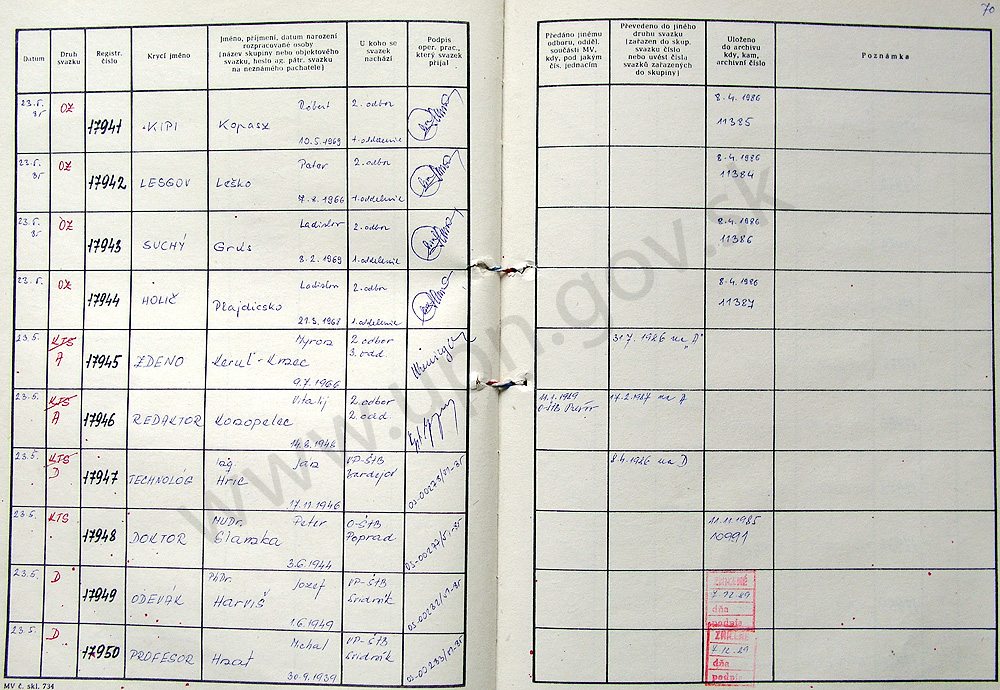 70
Datum
Druh svazku
Registr. číslo
Krycí jméno
Jméno, příjmení, datum narození rozpracované osoby (název skupiny nebo objektového svazku, heslo ag. pátr. svazku na neznámého pachatele)
U koho se svazek nachází
Podpis oper. prac., který svazek přijal
Předáno jinému odboru, odděl. součásti MV, kdy, pod jakým čís. jednacím
Převedeno do jiného druhu svazku (zařazen do skup. svazku číslo nebo uvést čísla svazků zařazených do skupiny)
Uloženo do archivu kdy, kam, archivní číslo
Poznámka
23.5. 85 OZ 17941 KIPI Róbert Kopasz 10.5.1969 2. odbor 1. oddelenie 8.4.1986 11385
23.5. 85 OZ 17942 LESGOV Peter Leško 1966 2. odbor 1. oddelenie 8.4.1986 11384
23.5. 85 OZ 17943 SUCHÝ Ladislav Grus 8.2.1969 2. odbor 1. oddelenie 8.4.1986 11386
23.5. OZ 17944 HOLIČ Ladislav 1968 2. odbor 1. oddelenie 8.4.1986 11387
23.5. KTS A 17945 ZDENO Myron 9.7.1966 2. odbor 3. odd. 1986 na "A"
23.5. KTS A 17946 REDAKTOR Vitalij Konopelec 1946 2. odbor 2. odd. 11.1.1989 17.2.1987 na A
23.5. KTS D 17947 TECHNOLÓG Ing. Ján Hric 17.11.1946 VP-ŠtB Bardejov 8.4.1986 na D
23.5. KTS 17948 DOKTOR MUDr. Peter Slamka 3.6.1944 O-ŠtB Poprad 11.11.1985 10991
23.5. D 17949 ODEVÁK PhDr. Jozef Harviš 1.6.1949 VP-ŠtB Svidník 7.12.89 dňa podpis
23.5. D 17950 PROFESOR Michal Hrat 30.9.1939 VP-ŠtB Svidník 7.12.89 dňa podpis
MV č. skl. 734
www.upn.gov.sk